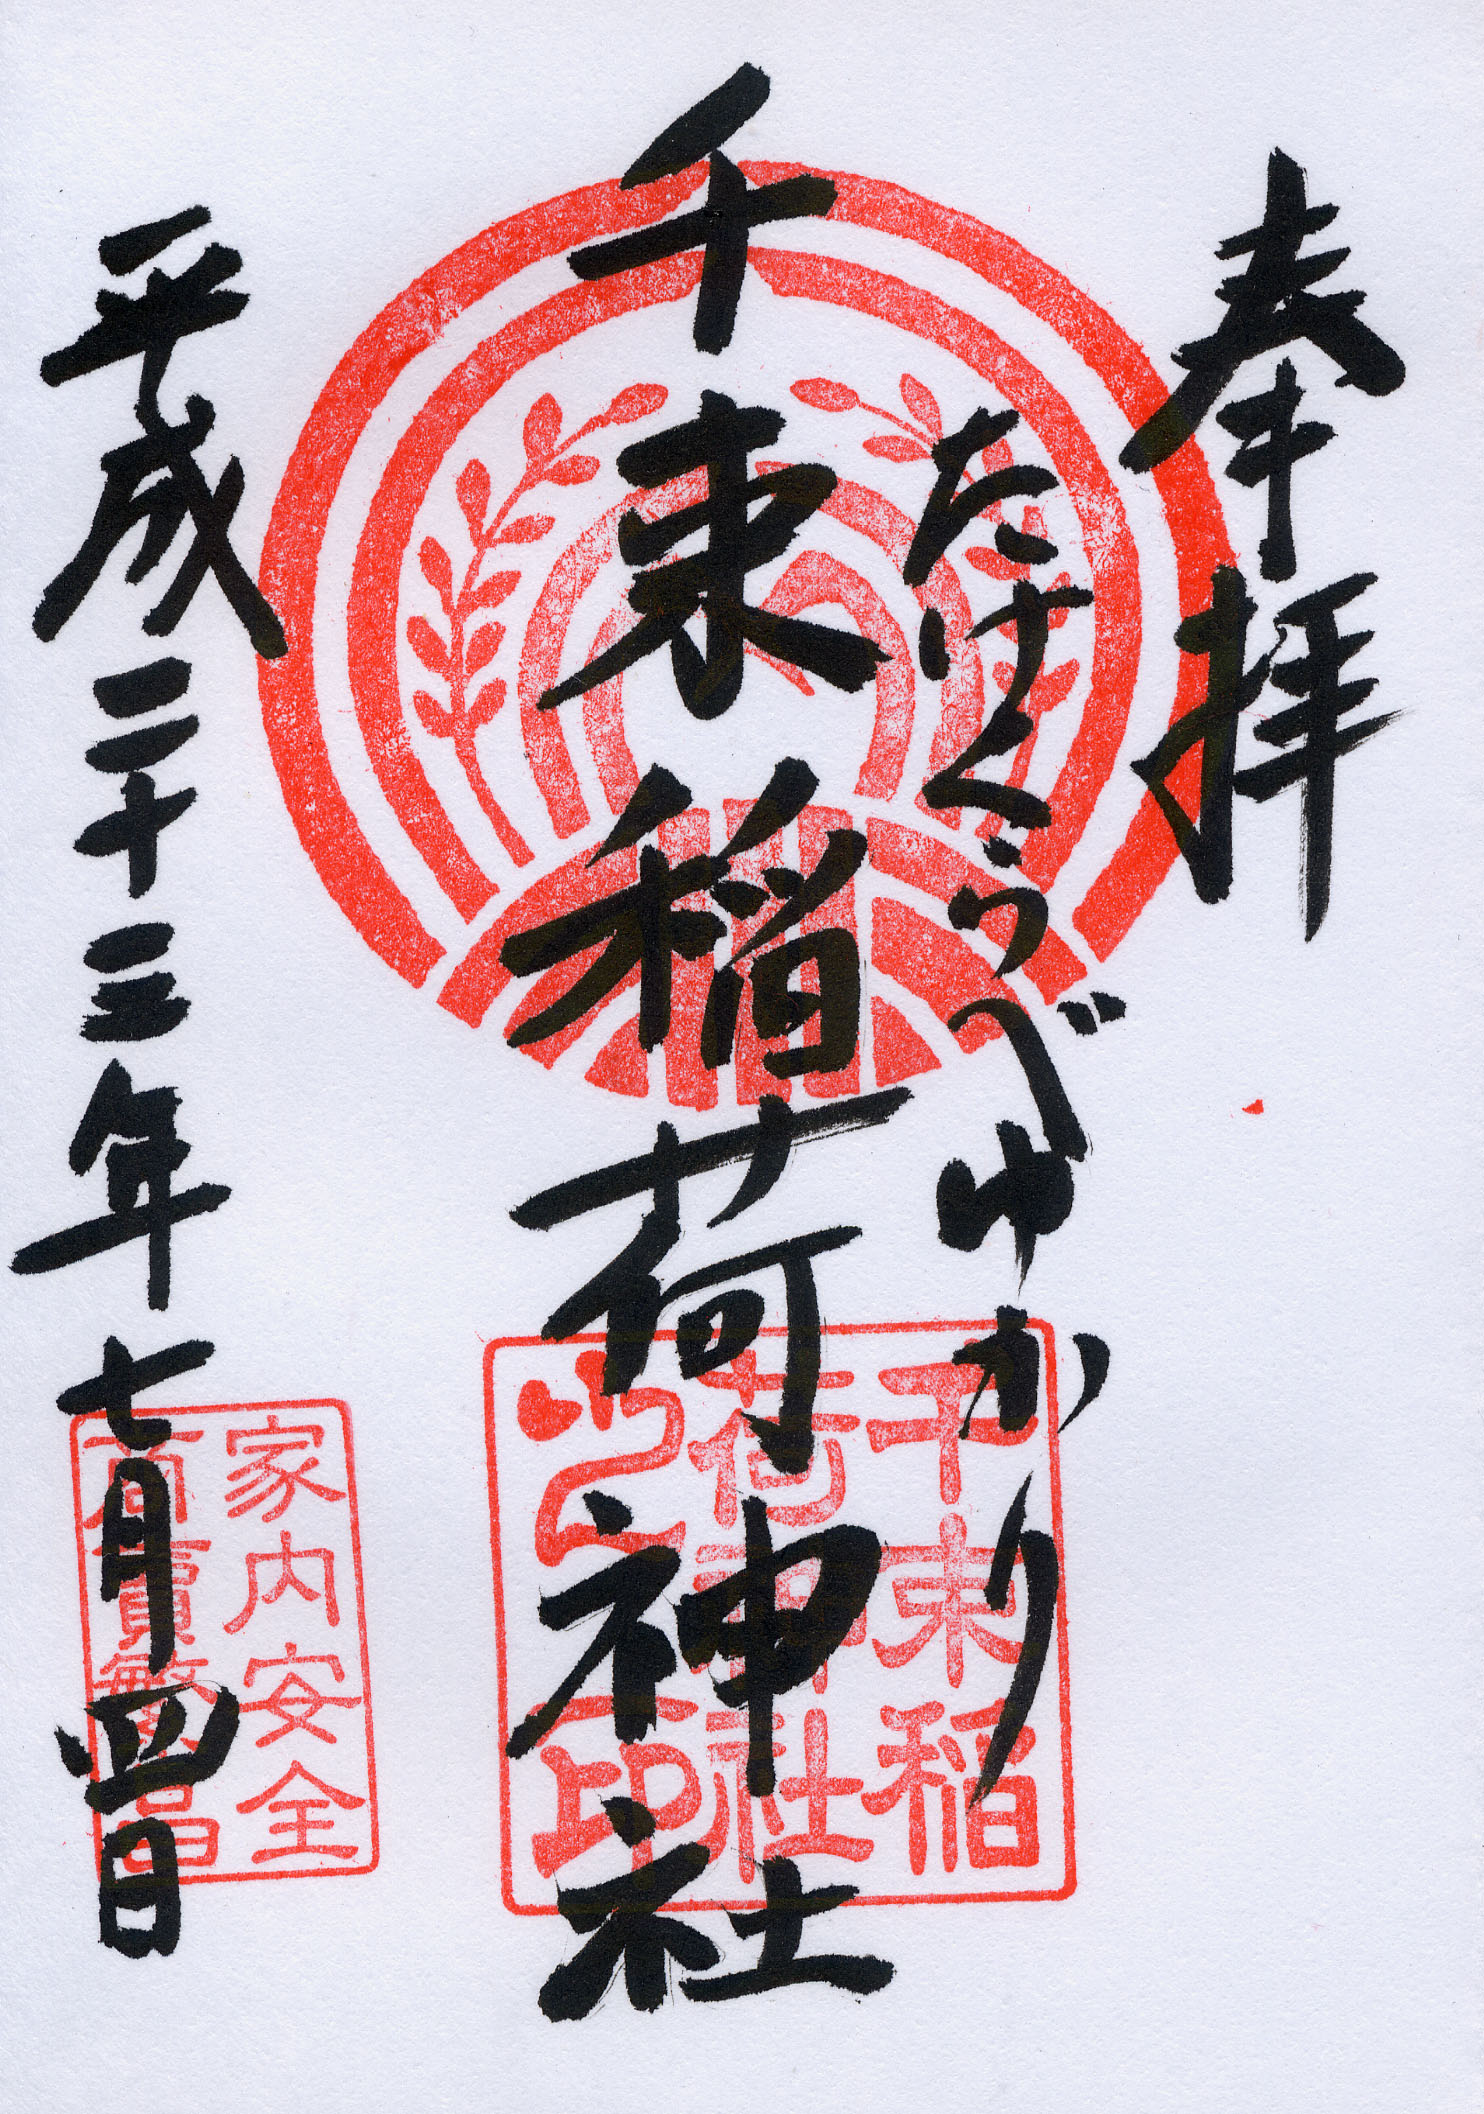 奉拝
たけくらべゆかり
千束稲荷神社
平成二十三年七月四日
千束稲
荷神社
之印
家内安全
商賣繁昌